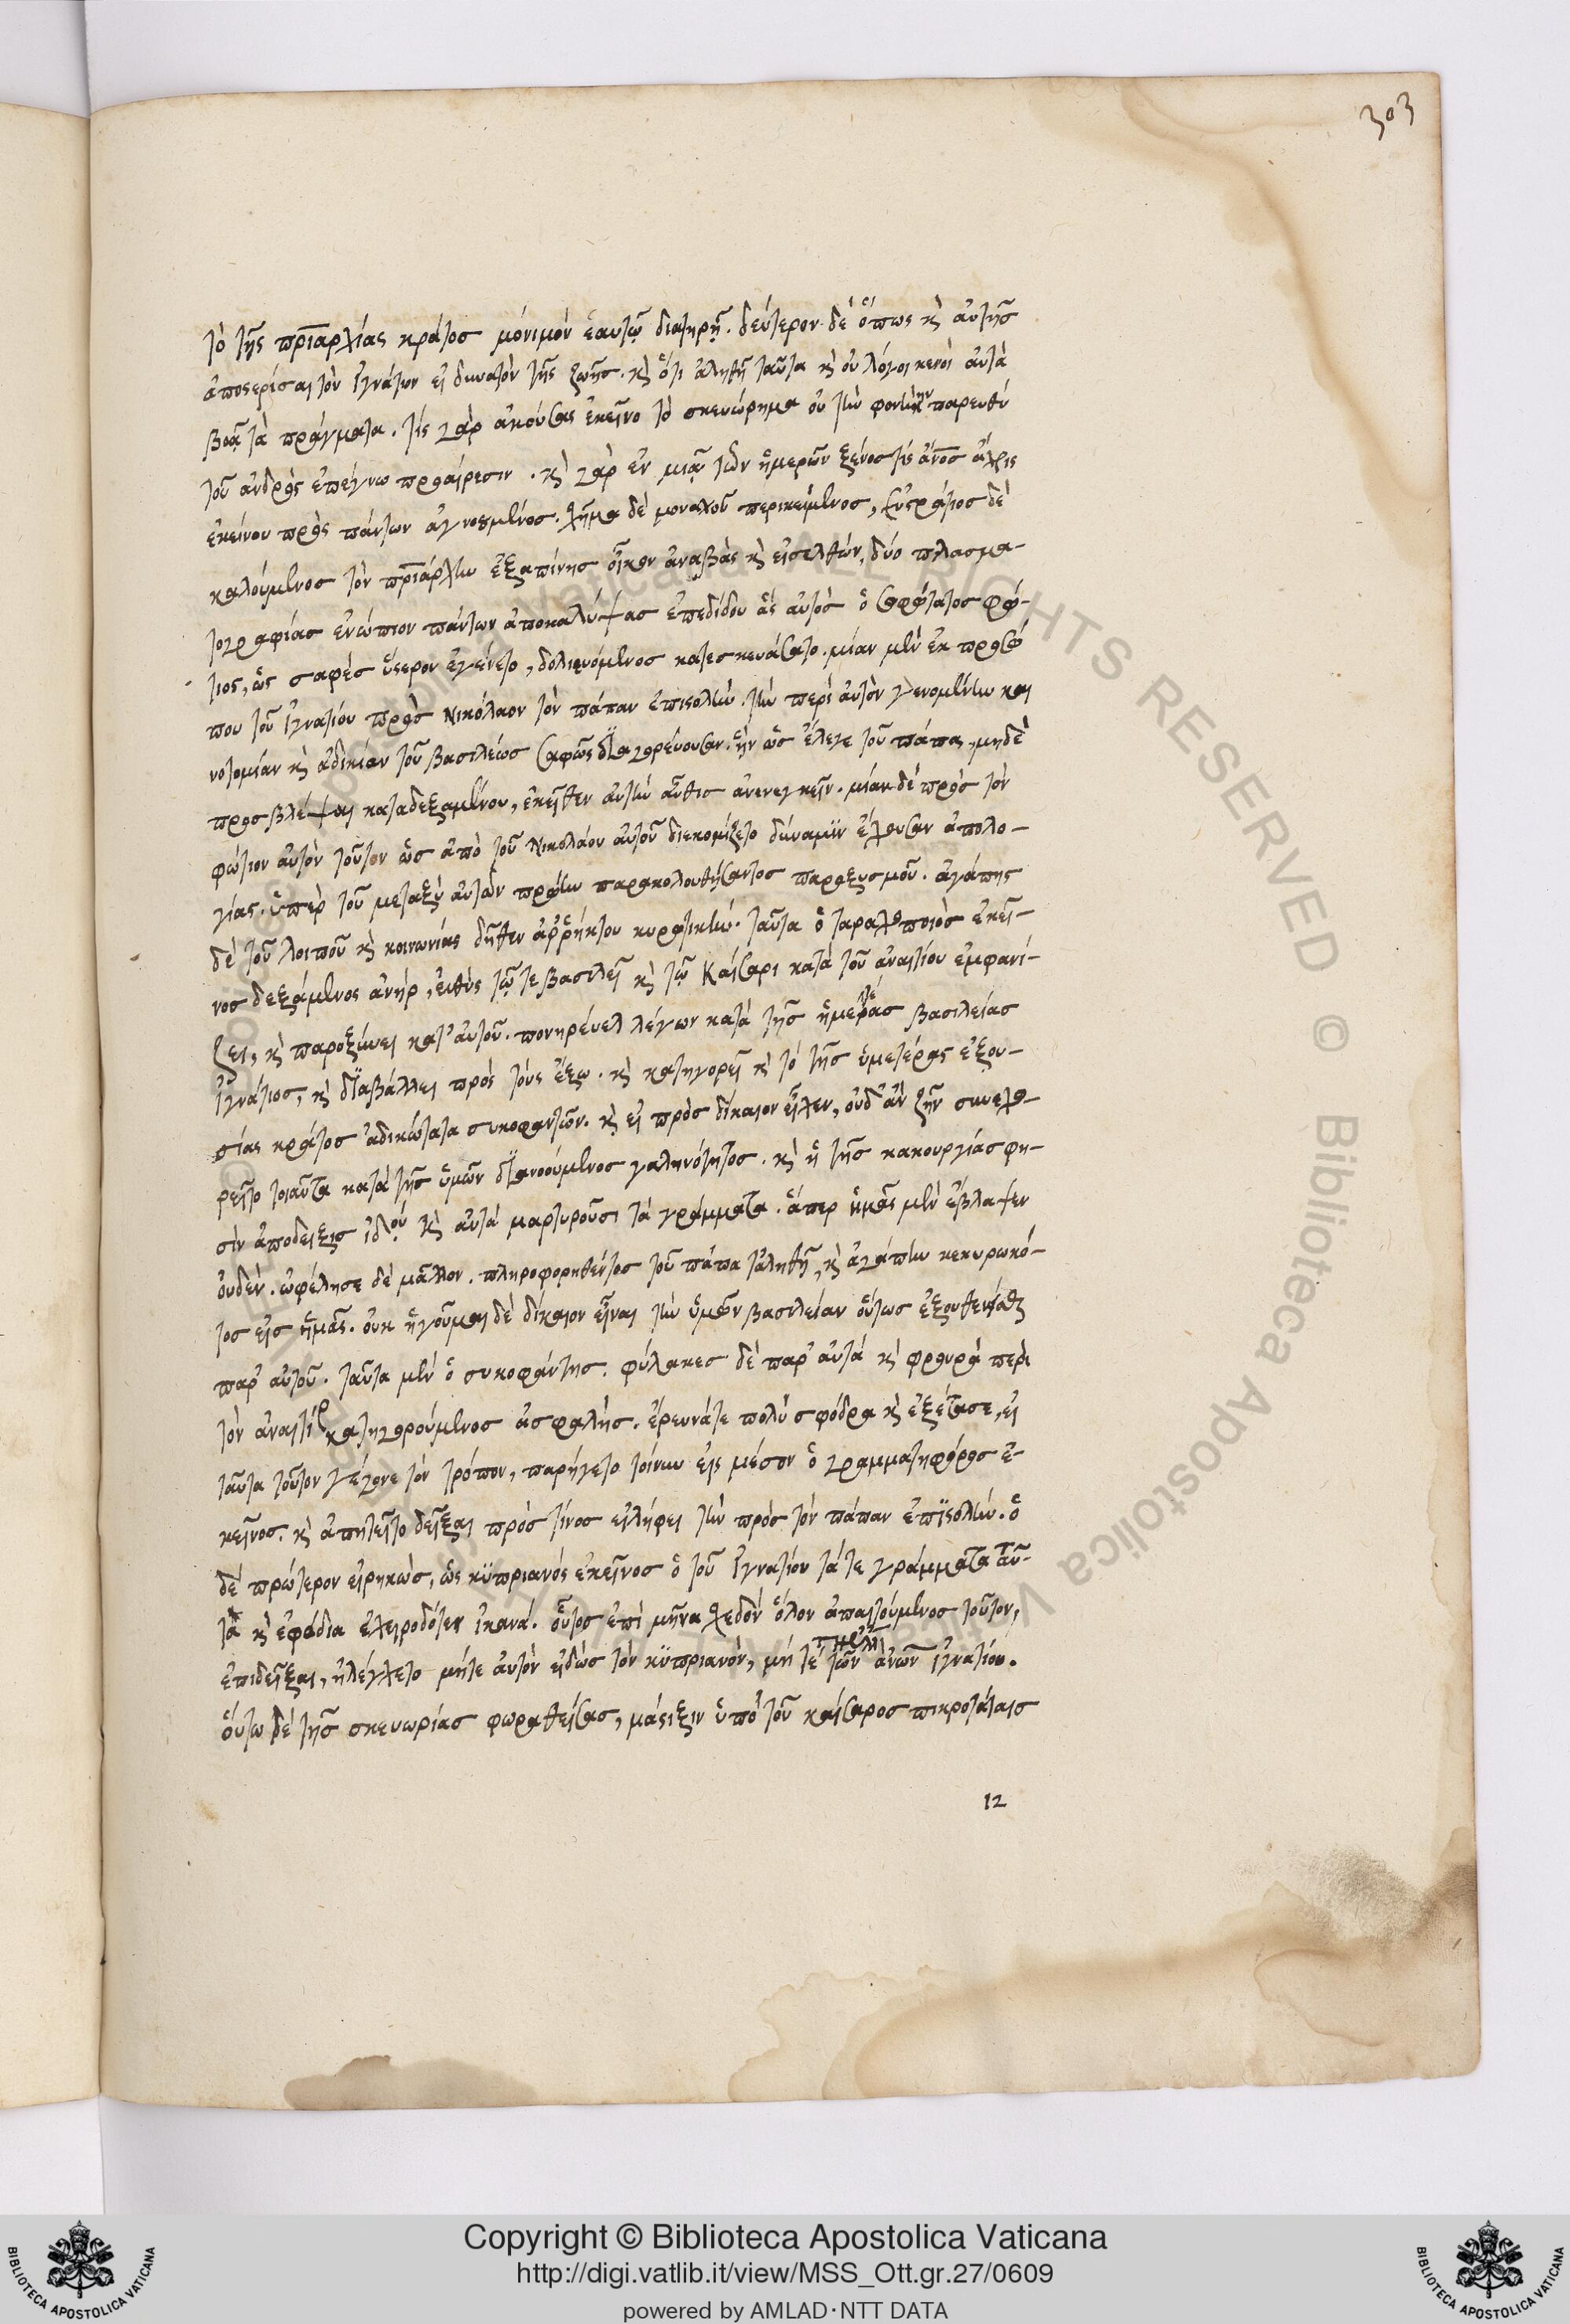 303
τὸ τῆς πριαρχίας κράτος μόνιμον ἑαυτῷ διατηρῇ. δεύτερον δὲ ὅπως κὶ αὐτῆς
ἀποστερίσαι τὸν ἰγνάτιον εἰ δυνατὸν τῆς ζωῆς. κὶ ὅτι ἀληθῆ ταῦτα κὶ οὐ λόγοι κενοὶ αὐτὰ
βοᾷ τὰ πράγματα. τίς γὰρ ἀκούσας ἐκεῖνο τὸ σκευώρημα οὐ τὴν φονικὴν παρευθὺ
τοῦ ἀνδρὸς ἐπέγνω προαίρεσιν. κὶ γὰρ ἐν μιᾷ τῶν ἡμερῶν ξένος τίς ἄνος ἄχρις
ἐκείνου πρὸς πάντων ἀγνοούμενος. σχῆμα δὲ μοναχοῦ περικείμενος, εὐστράτιος δὲ
καλούμενος τὸν πριάρχην ἐξαπίνης οἶκον ἀναβὰς κὶ εἰσελθών, δύο πλασμα-
τογραφίας ἐνώπιον πάντων ἀποκαλύψας ἐπεδίδου ἃς αὐτὸς ὁ σοφώτατος φώ-
τιος, ὡς σαφὲς ὕστερον ἐγένετο, δολιευόμενος κατεσκευάσατο. μίαν μὲν ἐκ προσώ
που τοῦ ἰγνατίου πρὸς Νικόλαον τὸν πάπαν ἐπιστολὴν. τὴν περὶ αὐτὸν γενομένην και
νοτομίαν κὶ ἀδικίαν τοῦ βασιλέως σαφῶς διαγορεύουσαν. ἣν ὡς ἔλεγε τοῦ πάπα, μηδὲ
προσβλέψαι καταδεξαμένου, ἐκεῖθεν αὐτὴν αὖθις ἀνενεγκεῖν. μίαν δὲ πρὸς τὸν
φώτιον αὐτὸν τοῦτον ὡς ἀπὸ τοῦ Νικολάου αὐτοῦ διεκομίζετο δύναμιν ἔχουσαν ἀπολο-
γίας. ὑπὲρ τοῦ μεταξὺ αὐτῶν πρώην παρακολουθήσαντος παροξυσμοῦ. ἀγάπης
δὲ τοῦ λοιποῦ κὶ κοινωνίας δῆθεν ἀῤῥήκτου κυρωτικὴν. ταῦτα ὁ ταραχοποιὸς ἐκεῖ-
νος δεξάμενος ἀνὴρ, εὐθὺς τῷ τε βασιλεῖ κὶ τῷ Καίσαρι κατὰ τοῦ ἀναιτίου ἐμφανί-
ζει, κὶ παροξύνει κατ' αὐτοῦ. πονηρεύει λέγων κατὰ τῆς ἡμετέρας βασιλείας
ἰγνάτιος, κὶ διαβάλλει πρὸς τοὺς ἔξω. κὶ κατηγορεῖ κὶ τὸ τῆς ὑμετέρας ἐξου-
σίας κράτος ἀδικώτατα συκοφαντῶν. κὶ εἰ πρὸς δίκαιον εἶχεν, οὐδ' ἂν ζῆν συνεχω-
ρεῖτο τοιαῦτα κατὰ τῆς ὑμῶν διανοούμενος γαληνότητος. κὶ ἡ τῆς κακουργίας φη-
σὶν ἀπόδειξις ἰδοὺ. κὶ αὐτὰ μαρτυροῦσι τὰ γράμματα. ἅπερ ἡμᾶς μὲν ἔβλαψεν
οὐδὲν. ὠφέλησε δὲ μᾶλλον. πληροφορηθέντος τοῦ πάπα τἀληθῆ, κὶ ἀγάπην κεκυρωκό-
τος εἰς ἡμᾶς. οὐκ ἡγοῦμαι δὲ δίκαιον εἶναι τὴν ὑμῶν βασιλείαν οὕτως ἐξουθενεῖσθαι
παρ' αὐτοῦ. ταῦτα μὲν ὁ συκοφάντης. φύλακες δὲ παρ' αὐτὰ κὶ φρουρὰ περὶ
τὸν ἀναιτίως κατηγορούμενος ἀσφαλὴς. ἐρευνᾶτε πολὺ σφόδρα κὶ ἐξέτασε, εἰ
ταῦτα τοῦτον γέγονε τὸν τρόπον, παρήγετο τοίνυν εἰς μέσον ὁ γραμματηφόρος ἐ-
κεῖνος. κὶ ἀπῃτεῖτο δεῖξαι πρὸς τίνος εἰλήφει τὴν πρὸς τὸν πάπαν ἐπιστολὴν. ὁ
δὲ πρώτερον εἰρηκὼς, ὡς κυπριανός ἐκεῖνος ὁ τοῦ ἰγνατίου τά τε γράμματα ταῦ-
τα κὶ ἐφόδια ἐχειροδότει ἱκανά. οὗτος ἐπὶ μῆνα σχεδὸν ὅλον ἀπαιτούμενος τοῦτον,
ἐπιδεῖξαι, ἠλέγχετο μήτε αὐτὸν εἰδὼς τὸν κυπριανὸν, μή τέ τῶν ἀνων ἰγνατίου.
οὕτω δὲ τῆς σκευωρίας φωραθείσας, μάστιξιν ὑπὸ τοῦ καίσαρος πικροτάταις
12
Copyright © Biblioteca Apostolica Vaticana
http://digi.vatlib.it/view/MSS_Ott.gr.27/0609
powered by AMLAD·NTT DATA